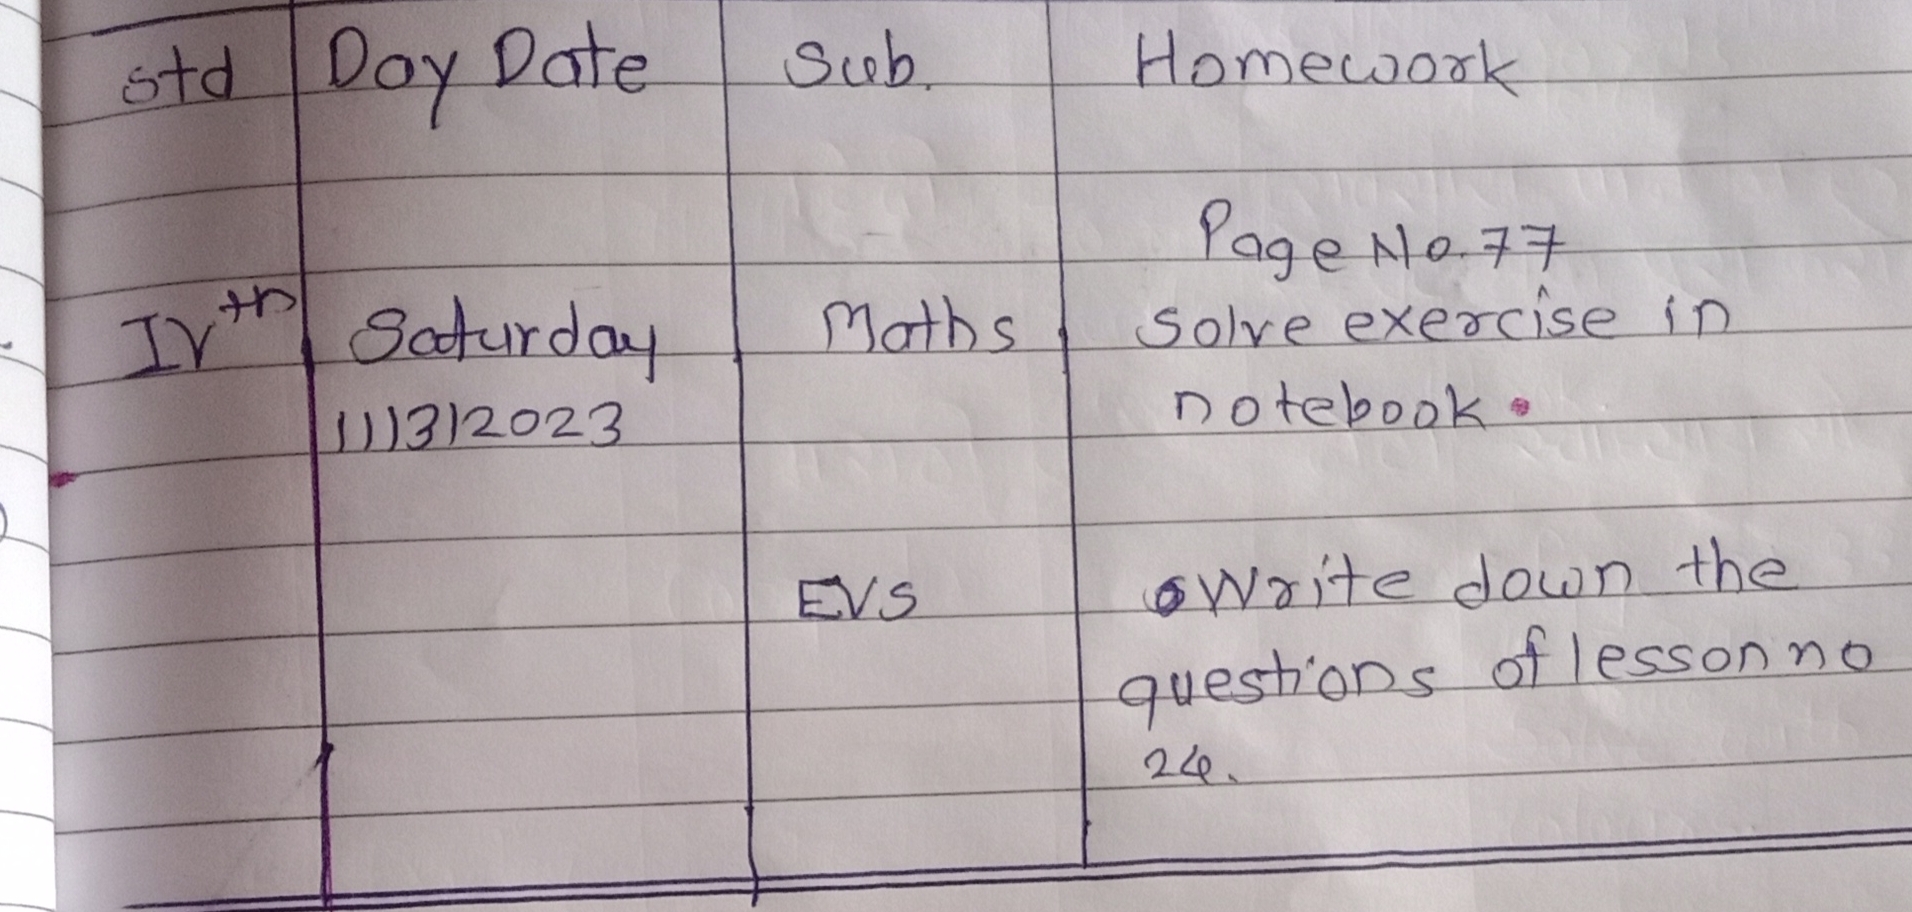 std Day Date Sub. Homework
Page No. 77
IVth Saturday Maths Solve exercise in
11/3/2023 notebook.
EVS Write down the
questions of lesson no
24.